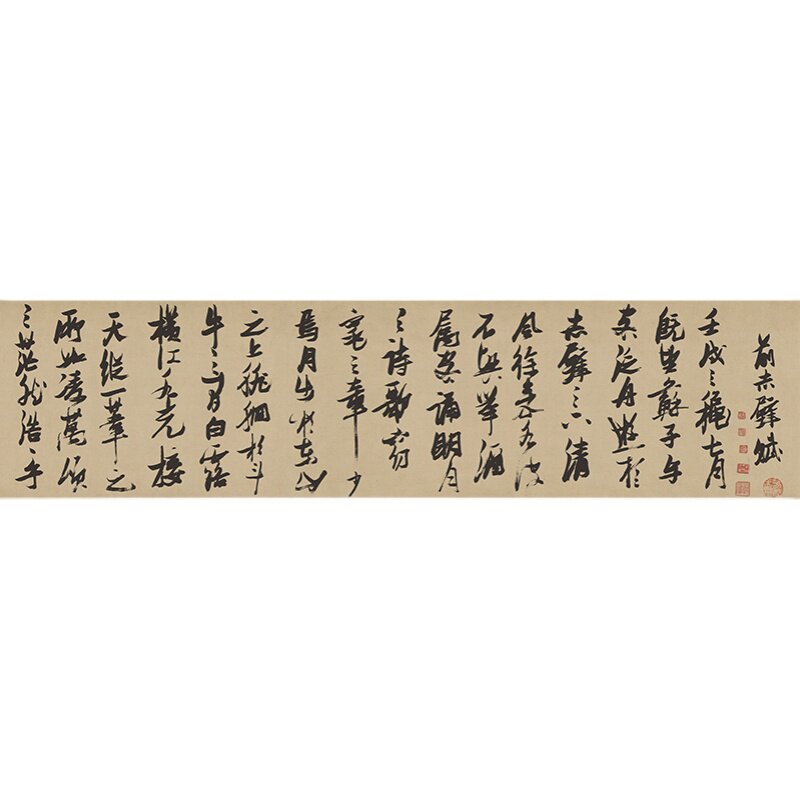 前赤壁賦
壬戌之秋七月
既望蘇子与
客泛舟遊於
赤壁之下清
風徐來水波
不興舉酒
屬客誦明月
之詩歌窈
窕之章少
焉月出於東山
之上徘徊於斗
牛之間白露
橫江水光接
天縱一葦之
所如凌萬頃
之茫然浩浩乎